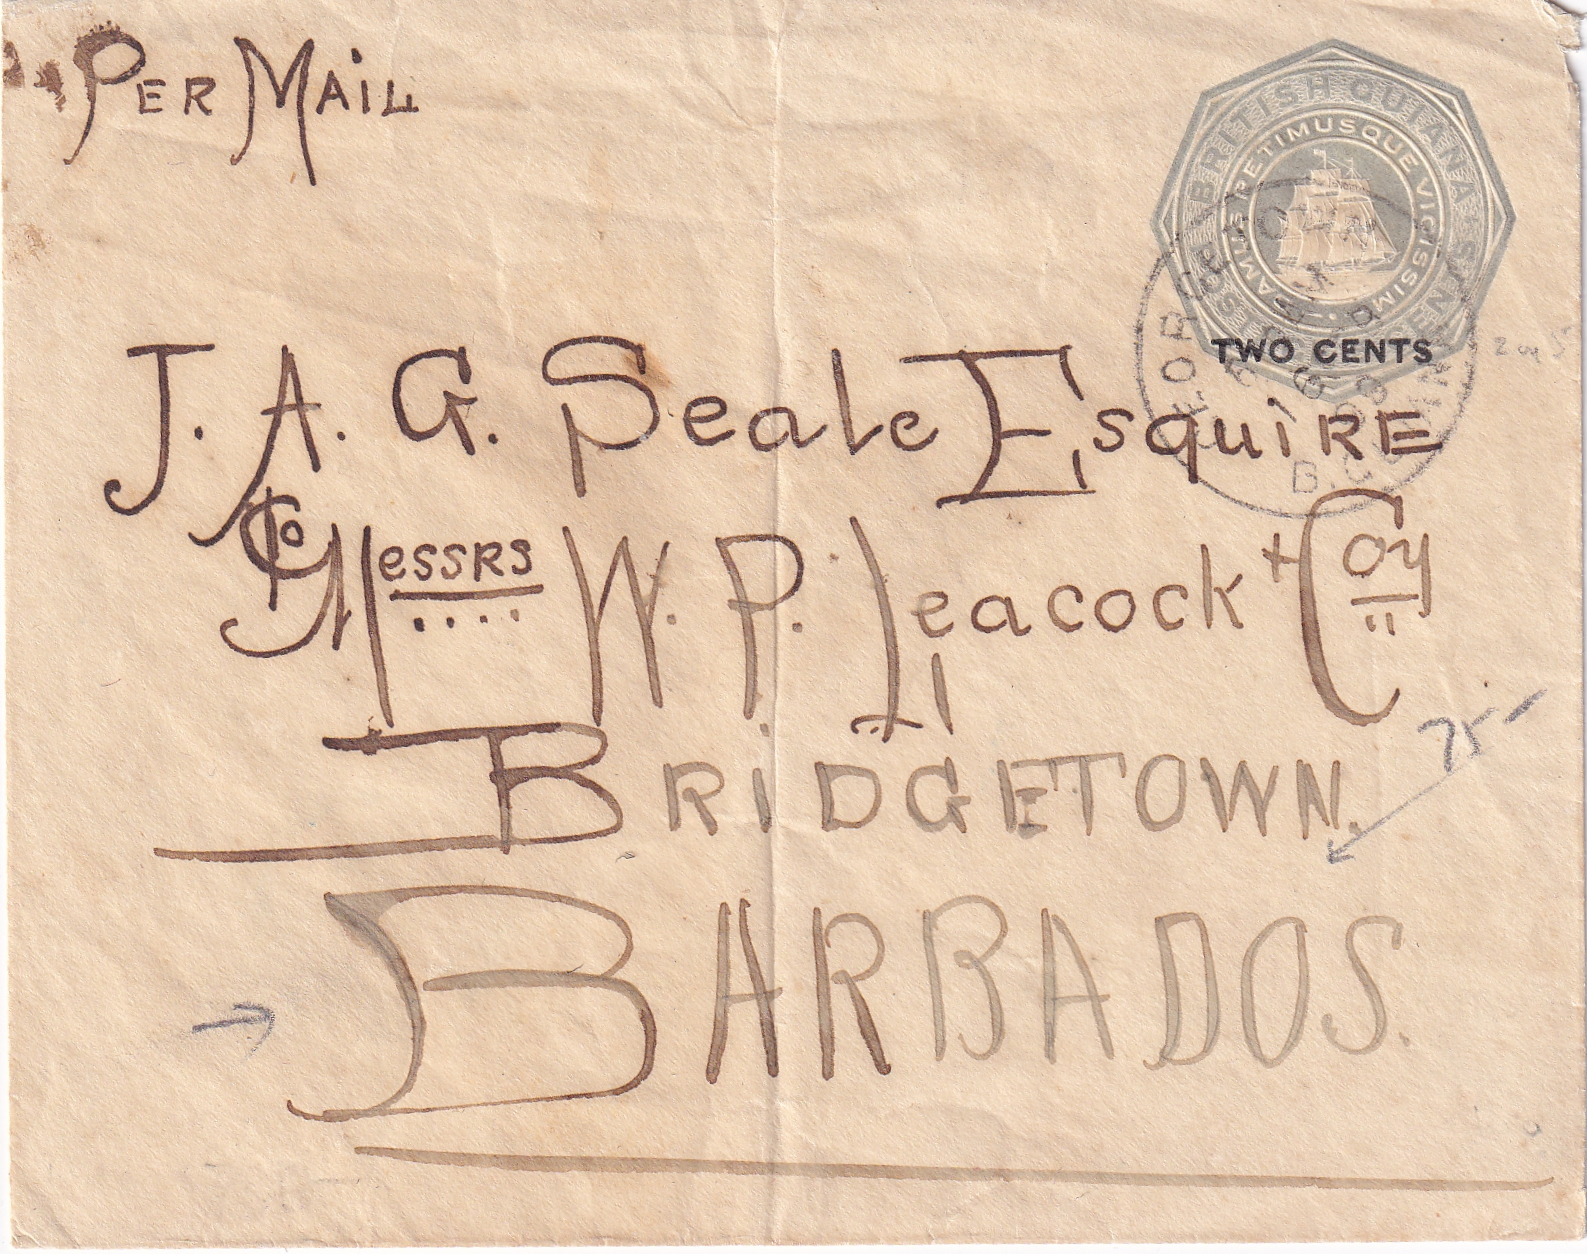 PER MAIL
BRITISH GUIANA
DAMUS PETIMUSQUE VICISSIM
TWO CENTS
GEORGETOWN
2 on 5
J. A. G. Seale EsquIRE
Co Messrs W. P. Leacock + Coy
75-
BRIDGETOWN.
BARBADOS.